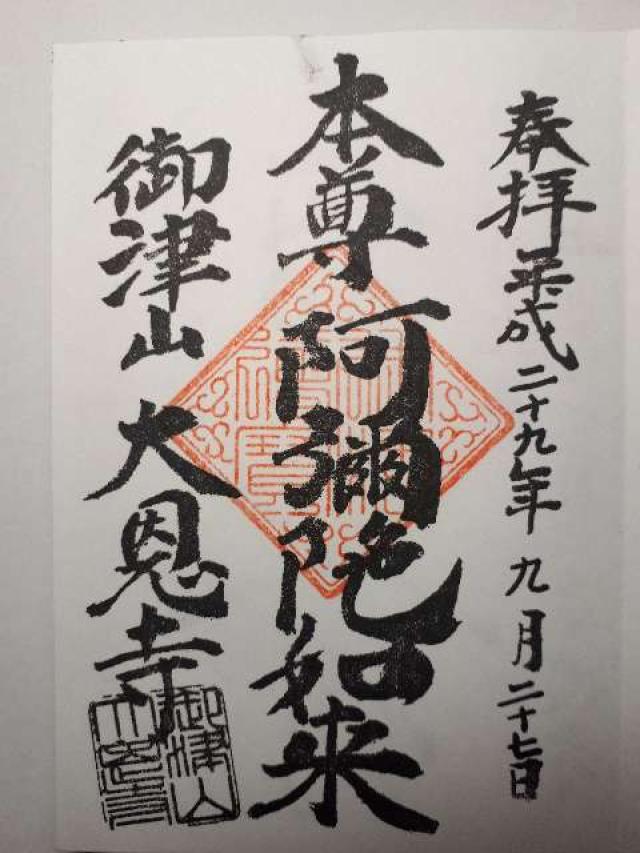 奉拝 平成二十九年九月二十七日
本尊 阿彌陀如来
御津山 大恩寺
御津山
大恩寺